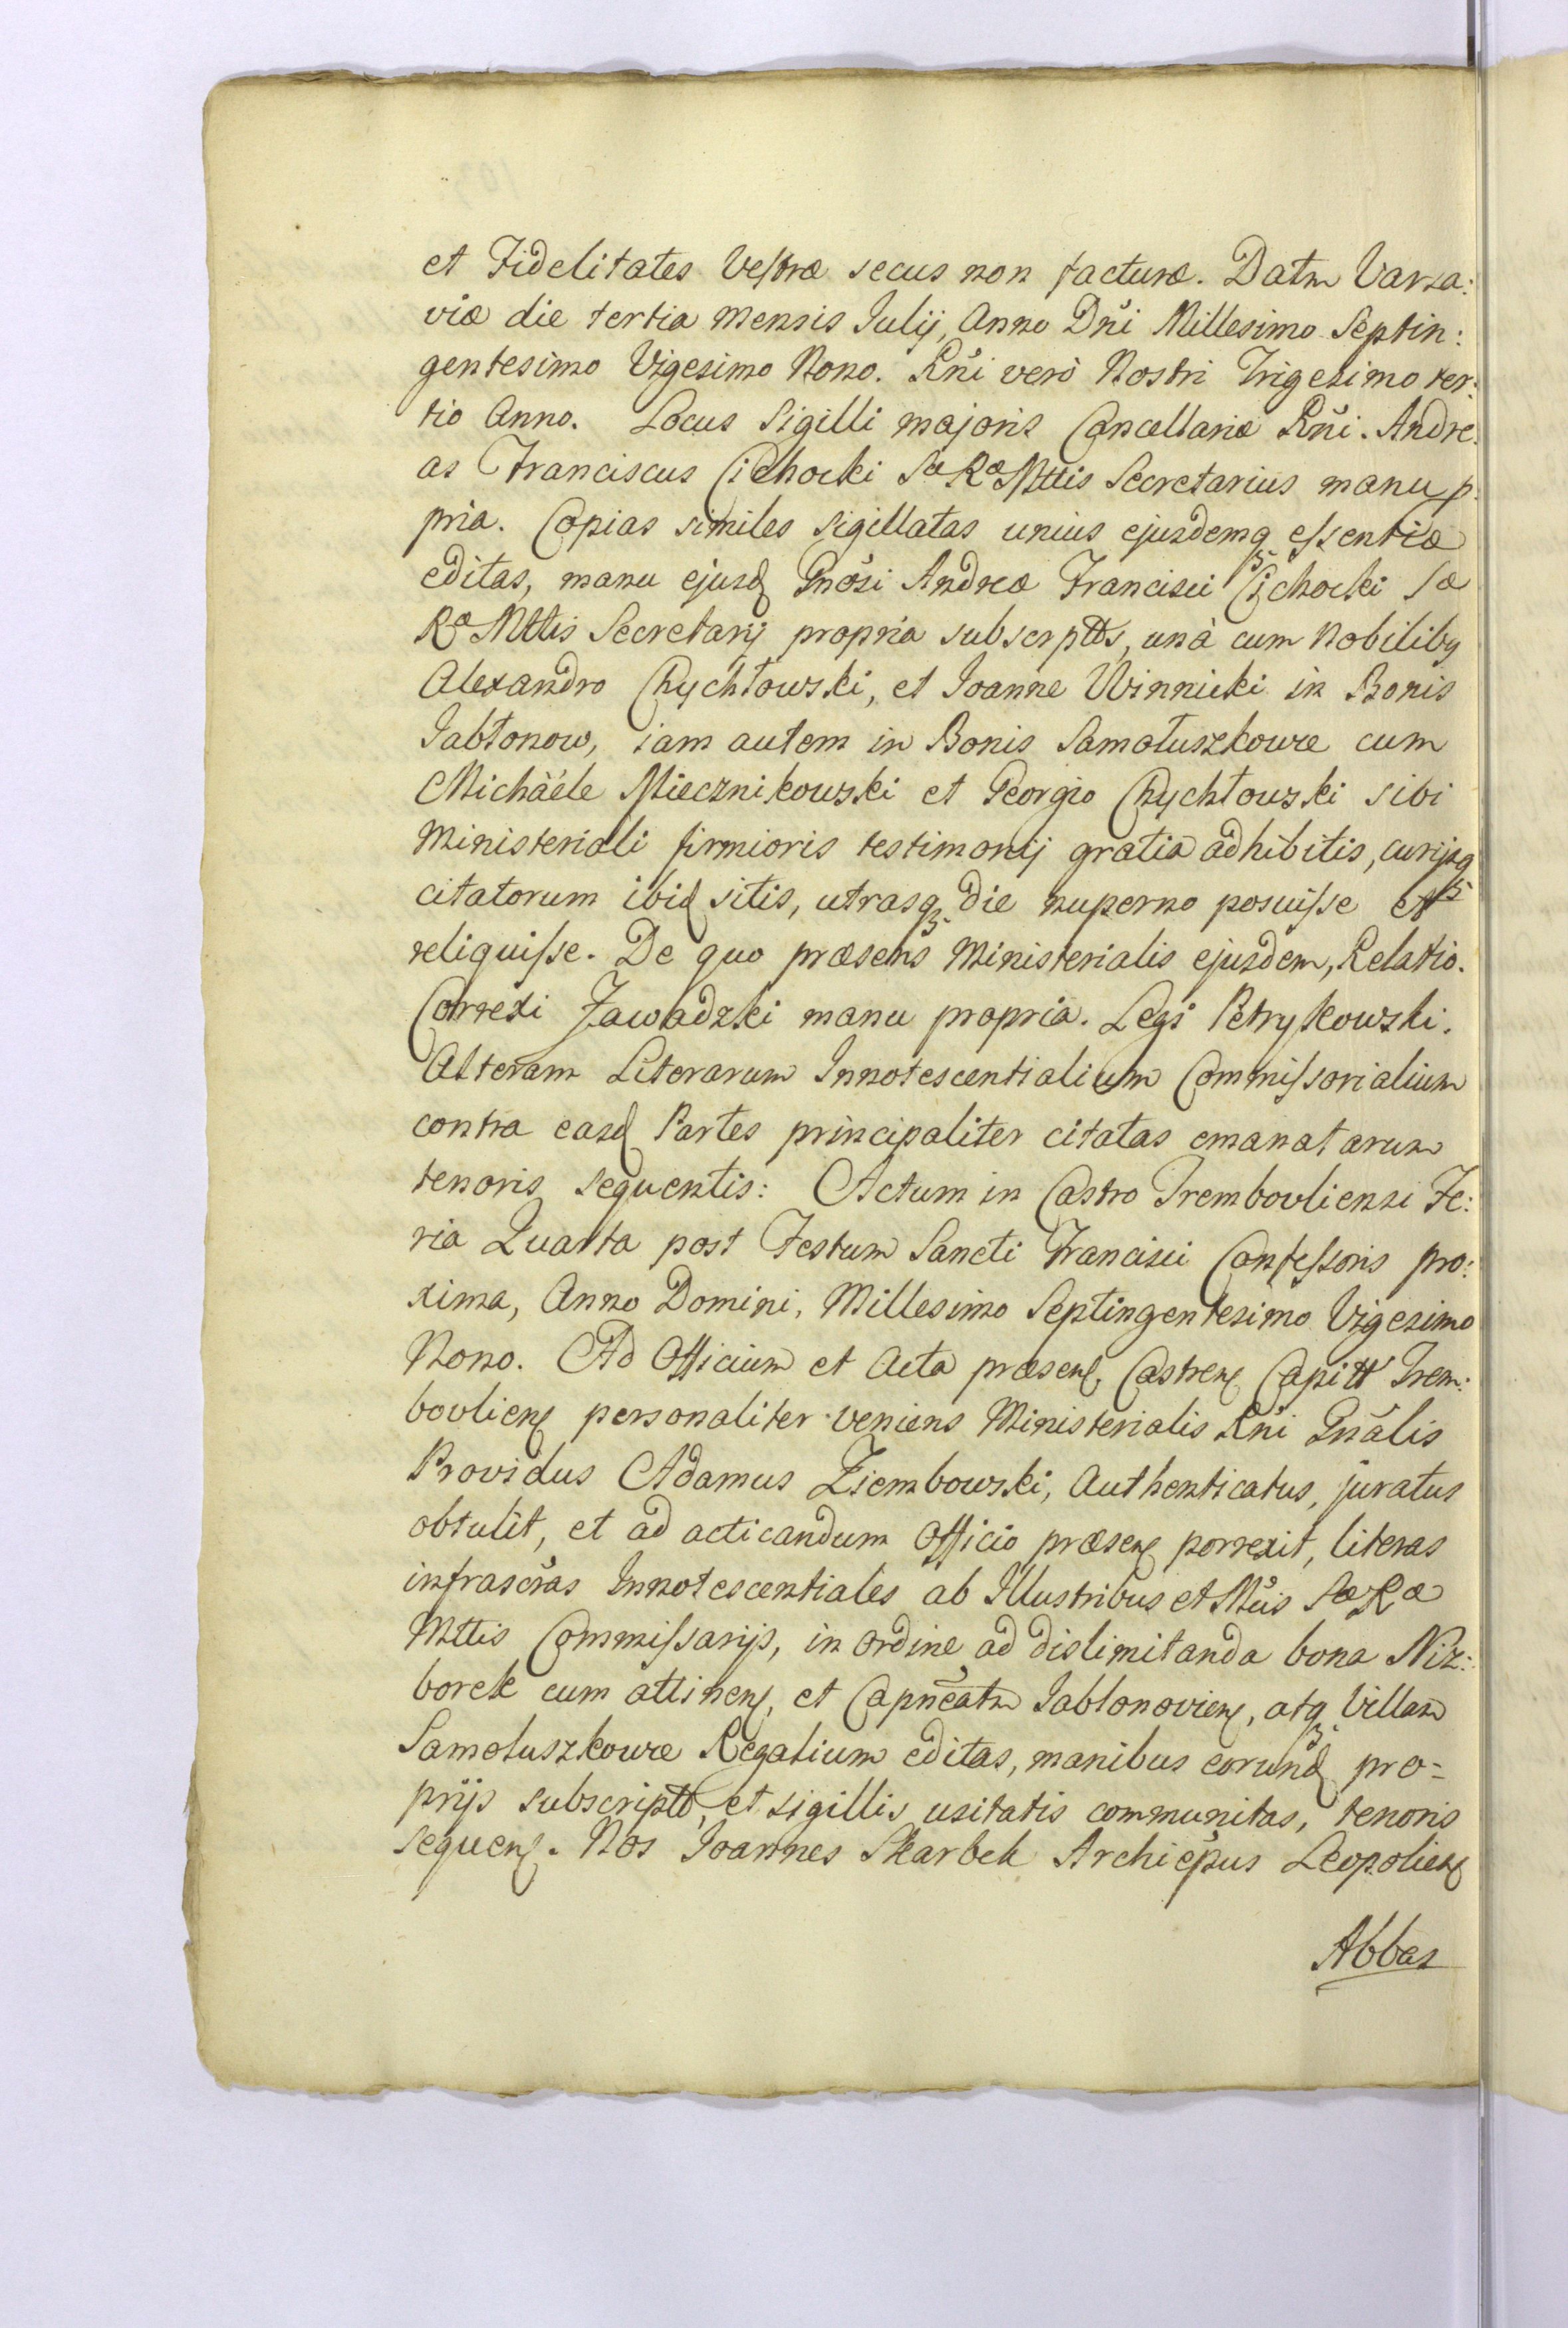 et Fidelitates Vestræ secus non facturæ. Datm Varsa:
viæ die tertia Mensis Julij, Anno Dni Millesimo Septin:
gentesimo Vigesimo Nono. Rni verò Nostri Trigesimo ter:
tio Anno. Locus Sigilli majoris Cancellariæ Rni. Andre:
as Franciscus Cichocki Sæ Ræ Mttis Secretarius manu p:
pria. Copias similes sigillatas unius ejusdemq essentiæ
editas, manu ejusd Gnosi Andreæ Francisci Cichocki Sæ
Ræ Mttis Secretarij propria subscrptts, unà cum Nobiliby
Alexandro Chychłowski, et Joanne Winnicki in Bonis
Jabłonow, iam autem in Bonis Samołuszkowce cum
Michäéle Miecznikowski et Georgio Chychłowski sibi
Ministeriali firmioris testimonij gratia adhibitis, curijsq
citatorum ibid sitis, utrasq die nuperno posuisse et
reliquisse. De quo præsens Ministerialis ejusdem, Relatio.
Correxi Zawadzki manu propria. Legi Petrykowski.
Alteram Literarum Innotescentialium Commissorialium
contra easd Partes principaliter citatas emanatarum
tenoris sequentis: Actum in Castro Trembovliensi Fe:
ria Quarta post Festum Sancti Francisci Confessoris pro:
xima, Anno Domini, Millesimo Septingentesimo Vigesimo
Nono. Ad Officium et Acta præsen, Castren Capitt Trem:
bovlien personaliter veniens Ministerialis Rni Gnalis
Providus Adamus Ziembowski, Authenticatus, juratus
obtulit, et ad acticandum Officio præsen porrexit, literas
infrascras Innotescentiales ab Illustribus et Mcis Sæ Ræ
Mttis Commissarijs, in ordine ad dislimitanda bona Niz:
borck cum attinen, et Capneatm Jablonovien, atq Villam
Samołuszkowce Regalium editas, manibus eorund pro=
prijs subscriptt, et sigillis usitatis communitas, tenoris
sequen. Nos Joannes Skarbek Archiepus Leopolien
Abbas